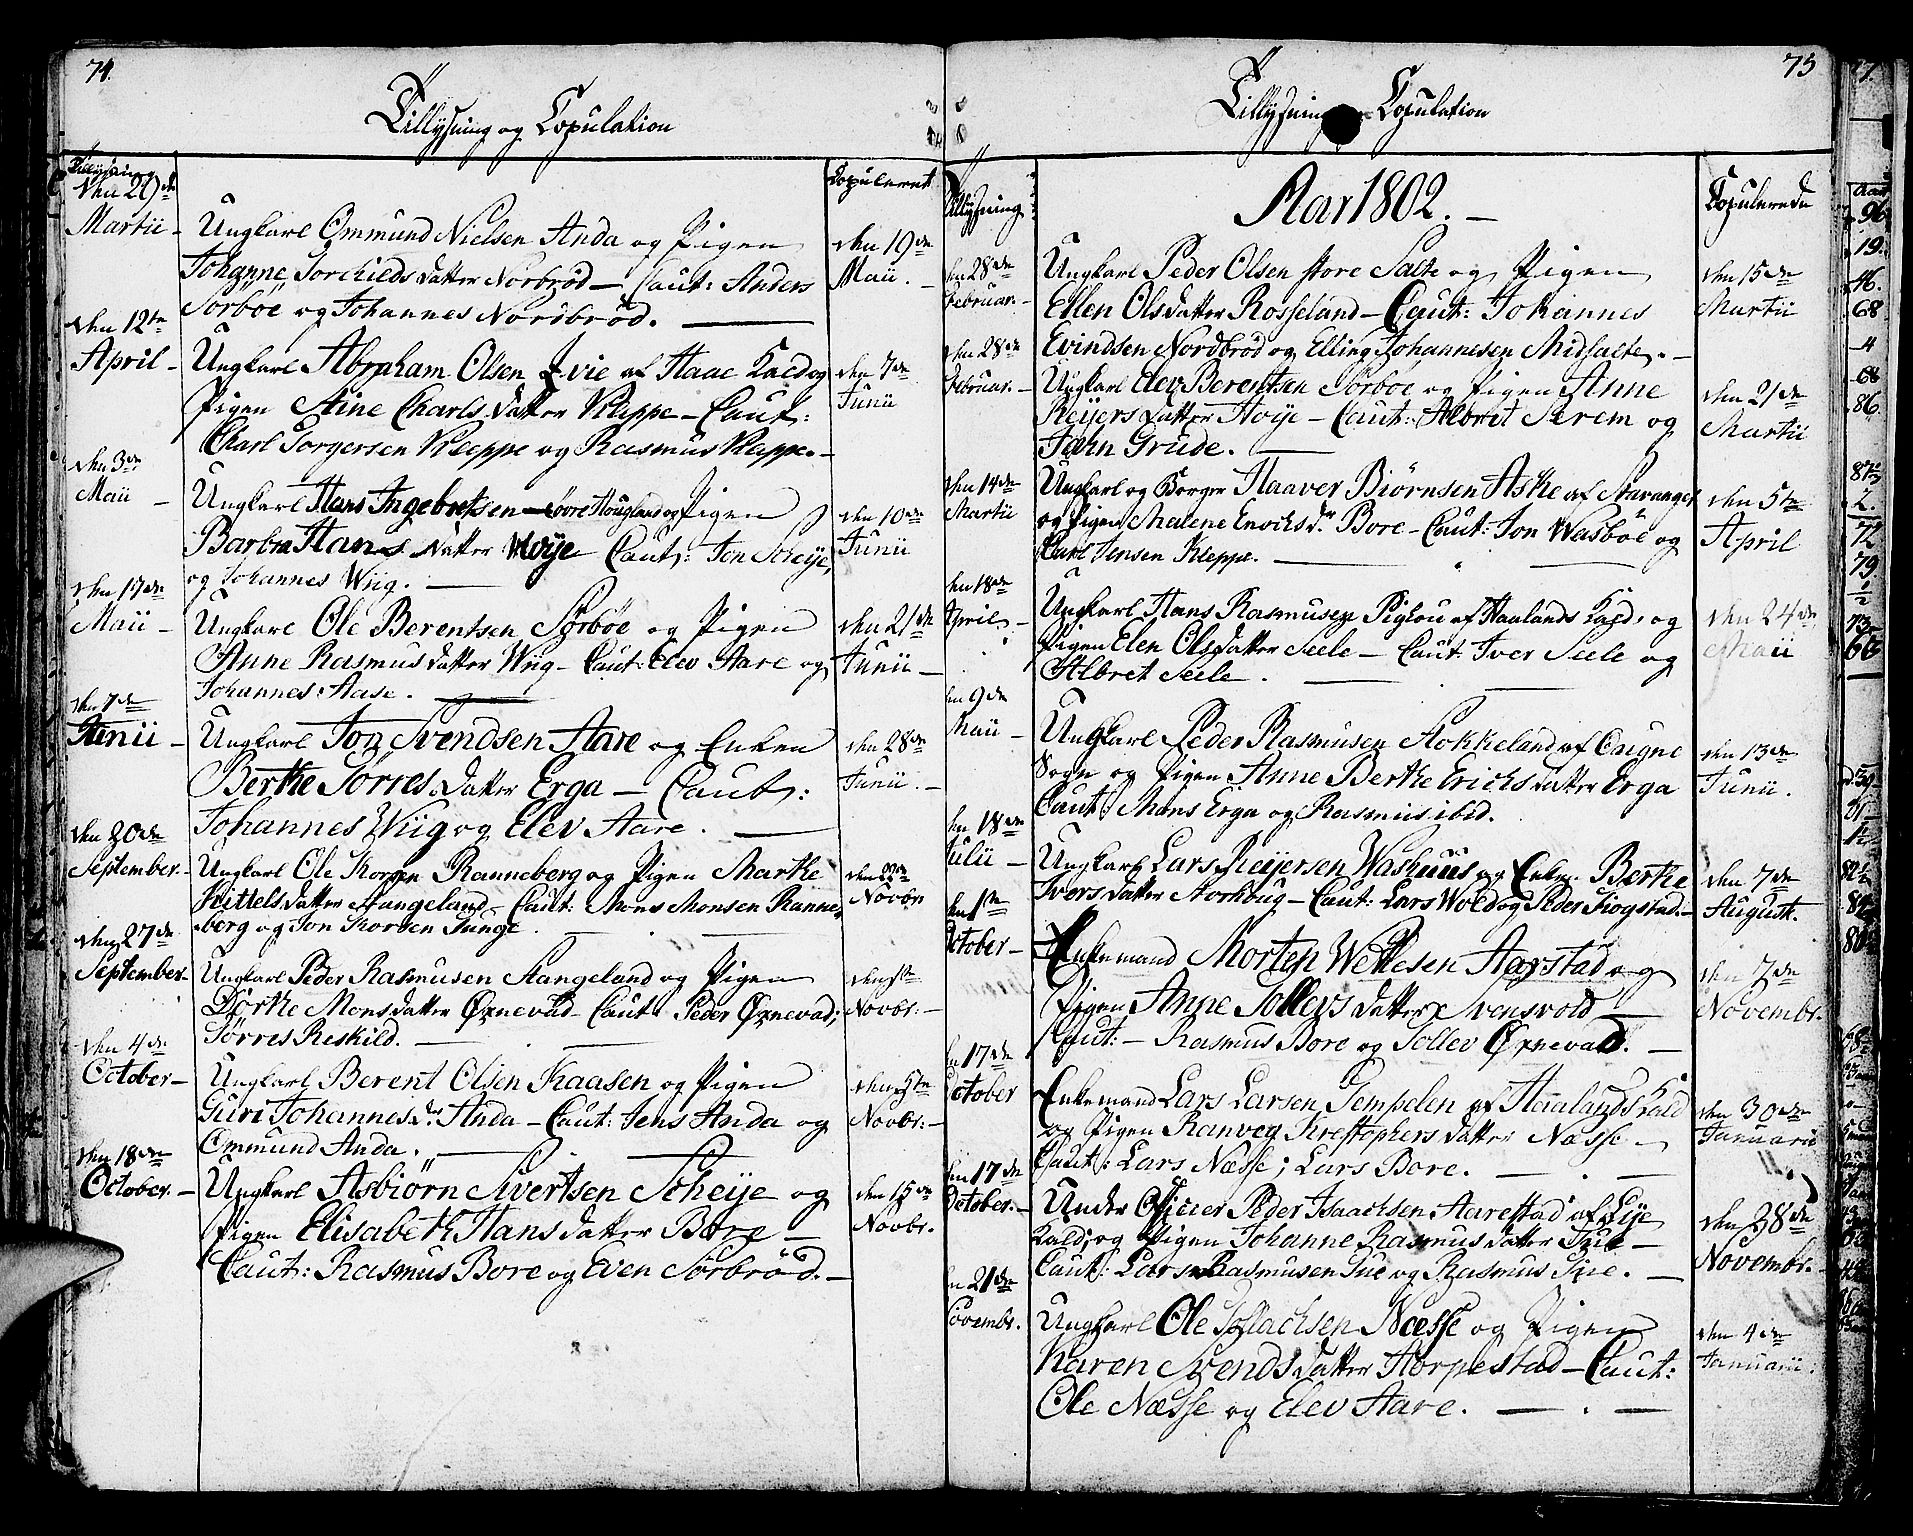 74.
Tillysning og Copulation
Tillysning
Copuleret
den 29de
Martii -
Ungkarl Ommund Nielsen Anda og Pigen
Johanne Torchilds datter Norbrød - Caut: Anders
Sørbøe og Johannes Nordbrød.
den 19de
Maii. -
den 12te
April -
Ungkarl Abraham Olsen Evie af Haae Kald og
Pigen Stine Charls datter Kleppe - Caut:
Charl Torgersen Kleppe og Rasmus Kleppe. -
den 7de
Junii
den 3de
Maii -
Ungkarl Hans Ingebretsen Hougland og Pigen
Barbra Hans datter Høije Caut: Jon Scheije,
og Johannes Wiig.
den 10de
Junii
den 17de
Maii -
Ungkarl Ole Berentsen Sørbøe og Pigen
Anne Rasmus datter Wiig - Caut: Elev Aare og
Johannes Aase.
den 21de
Junii -
den 7de
Junii -
Ungkarl Jon Svendsen Aare og Enken
Berthe Tørres datter Erga - Caut:
Johannes Wiig og Elev Aare.
den 28de
Junii. -
den 20de
September. -
Ungkarl Ole Thorsen Ranneberg og Pigen Marthe
Kittels datter Stangeland - Caut: Mons Monsen Ranne,
berg og Jon Thorsen Tunge.
den 22de
Novbr
den 27de
September -
Ungkarl Peder Rasmusen Stangeland og Pigen
Dorthe Mons datter Ørnevad - Caut: Peder Ørnevad;
Tørres Reskild.
den 1ste
Novbr: -
den 4de
October -
Ungkarl Berent Olsen Kaasen og Pigen
Guri Johannes dr Anda - Caut: Jens Anda og
Ommund Anda.
den 5te
Novbr: -
den 18de
October. -
Ungkarl Asbiørn Sivertsen Scheije og
Pigen Elisabeth Hans datter Bore -
Caut: Rasmus Bore og Even Sørbrød. -
den 15de
Novbr.
75
Tillysning Copulation
Tillysning
Aar 1802. -
Copulerede
den 28de
Februar. -
Ungkarl Peder Olsen store Salte og Pigen
Ellen Olsdatter Rosseland - Caut: Johannes
Evindsen Nordbrød og Elling Johannesen Midsalte. -
den 15de
Martii
den 28de
Februar. -
Ungkarl Elev Berentsen Sørbøe og Pigen Anne
Reijers datter Høije - Caut: Albret Serem og
Jørn Grude. -
den 21de
Martii
den 14de
Martii
Ungkarl og Borger Haaver Biørnsen Aske af Stavanger
og Pigen Malene Enochs dr Bore - Caut: Jon Wasbøe og
Carl Jensen Kleppe. -
den 5te
April
den 18de
April -
Ungkarl Hans Rasmusen Piglou af Haalands Kald, og
Pigen Elen Olsdatter Seele - Caut: Iver Seele og
Albret Seele.
den 24de
Maii
den 9de
Maii -
Ungkarl Peder Rasmusen Stokkeland af
Sogn og Pigen Anne Berthe Erichs datter Erga
Caut: Mons Erga og Rasmus ibid.
den 13de
Junii.
den 18de
Julii -
Ungkarl Lars Reijersen Washuus og Enken Berthe
Ivers datter Storhoug - Caut: Lars Wold og Peder Tiogstad. -
den 7de
August.
den 1ste
October -
Enkemand Morten Wellesen Harstad og
Pigen Anne Tollevs datter Svensvold -
Caut: - Rasmus Bore og Tollev Ørnevad. -
den 7de
Novembr.
den 17de
October
Enkemand Lars Larsen Tempelen af Haalands Kald
og Pigen Ranveg Kristophers datter Næsse -
Caut: Lars Næsse; Lars Bore. -
den 30de
Januarii
den 17de
October. -
Under Officier Peder Isaachsen Aarestad af Lije
Kald; og Pigen Johanne Rasmus datter Tue -
Caut: Lars Rasmusen Tue og Rasmus Tue. -
den 28de
Novembr. -
den 21de
Novembr.
Ungkarl Ole Tollachsen Næsse og Pigen
Karen Svends datter Horpestad - Caut:
Ole Næsse og Elev Aare. -
den 4de
Januarii.